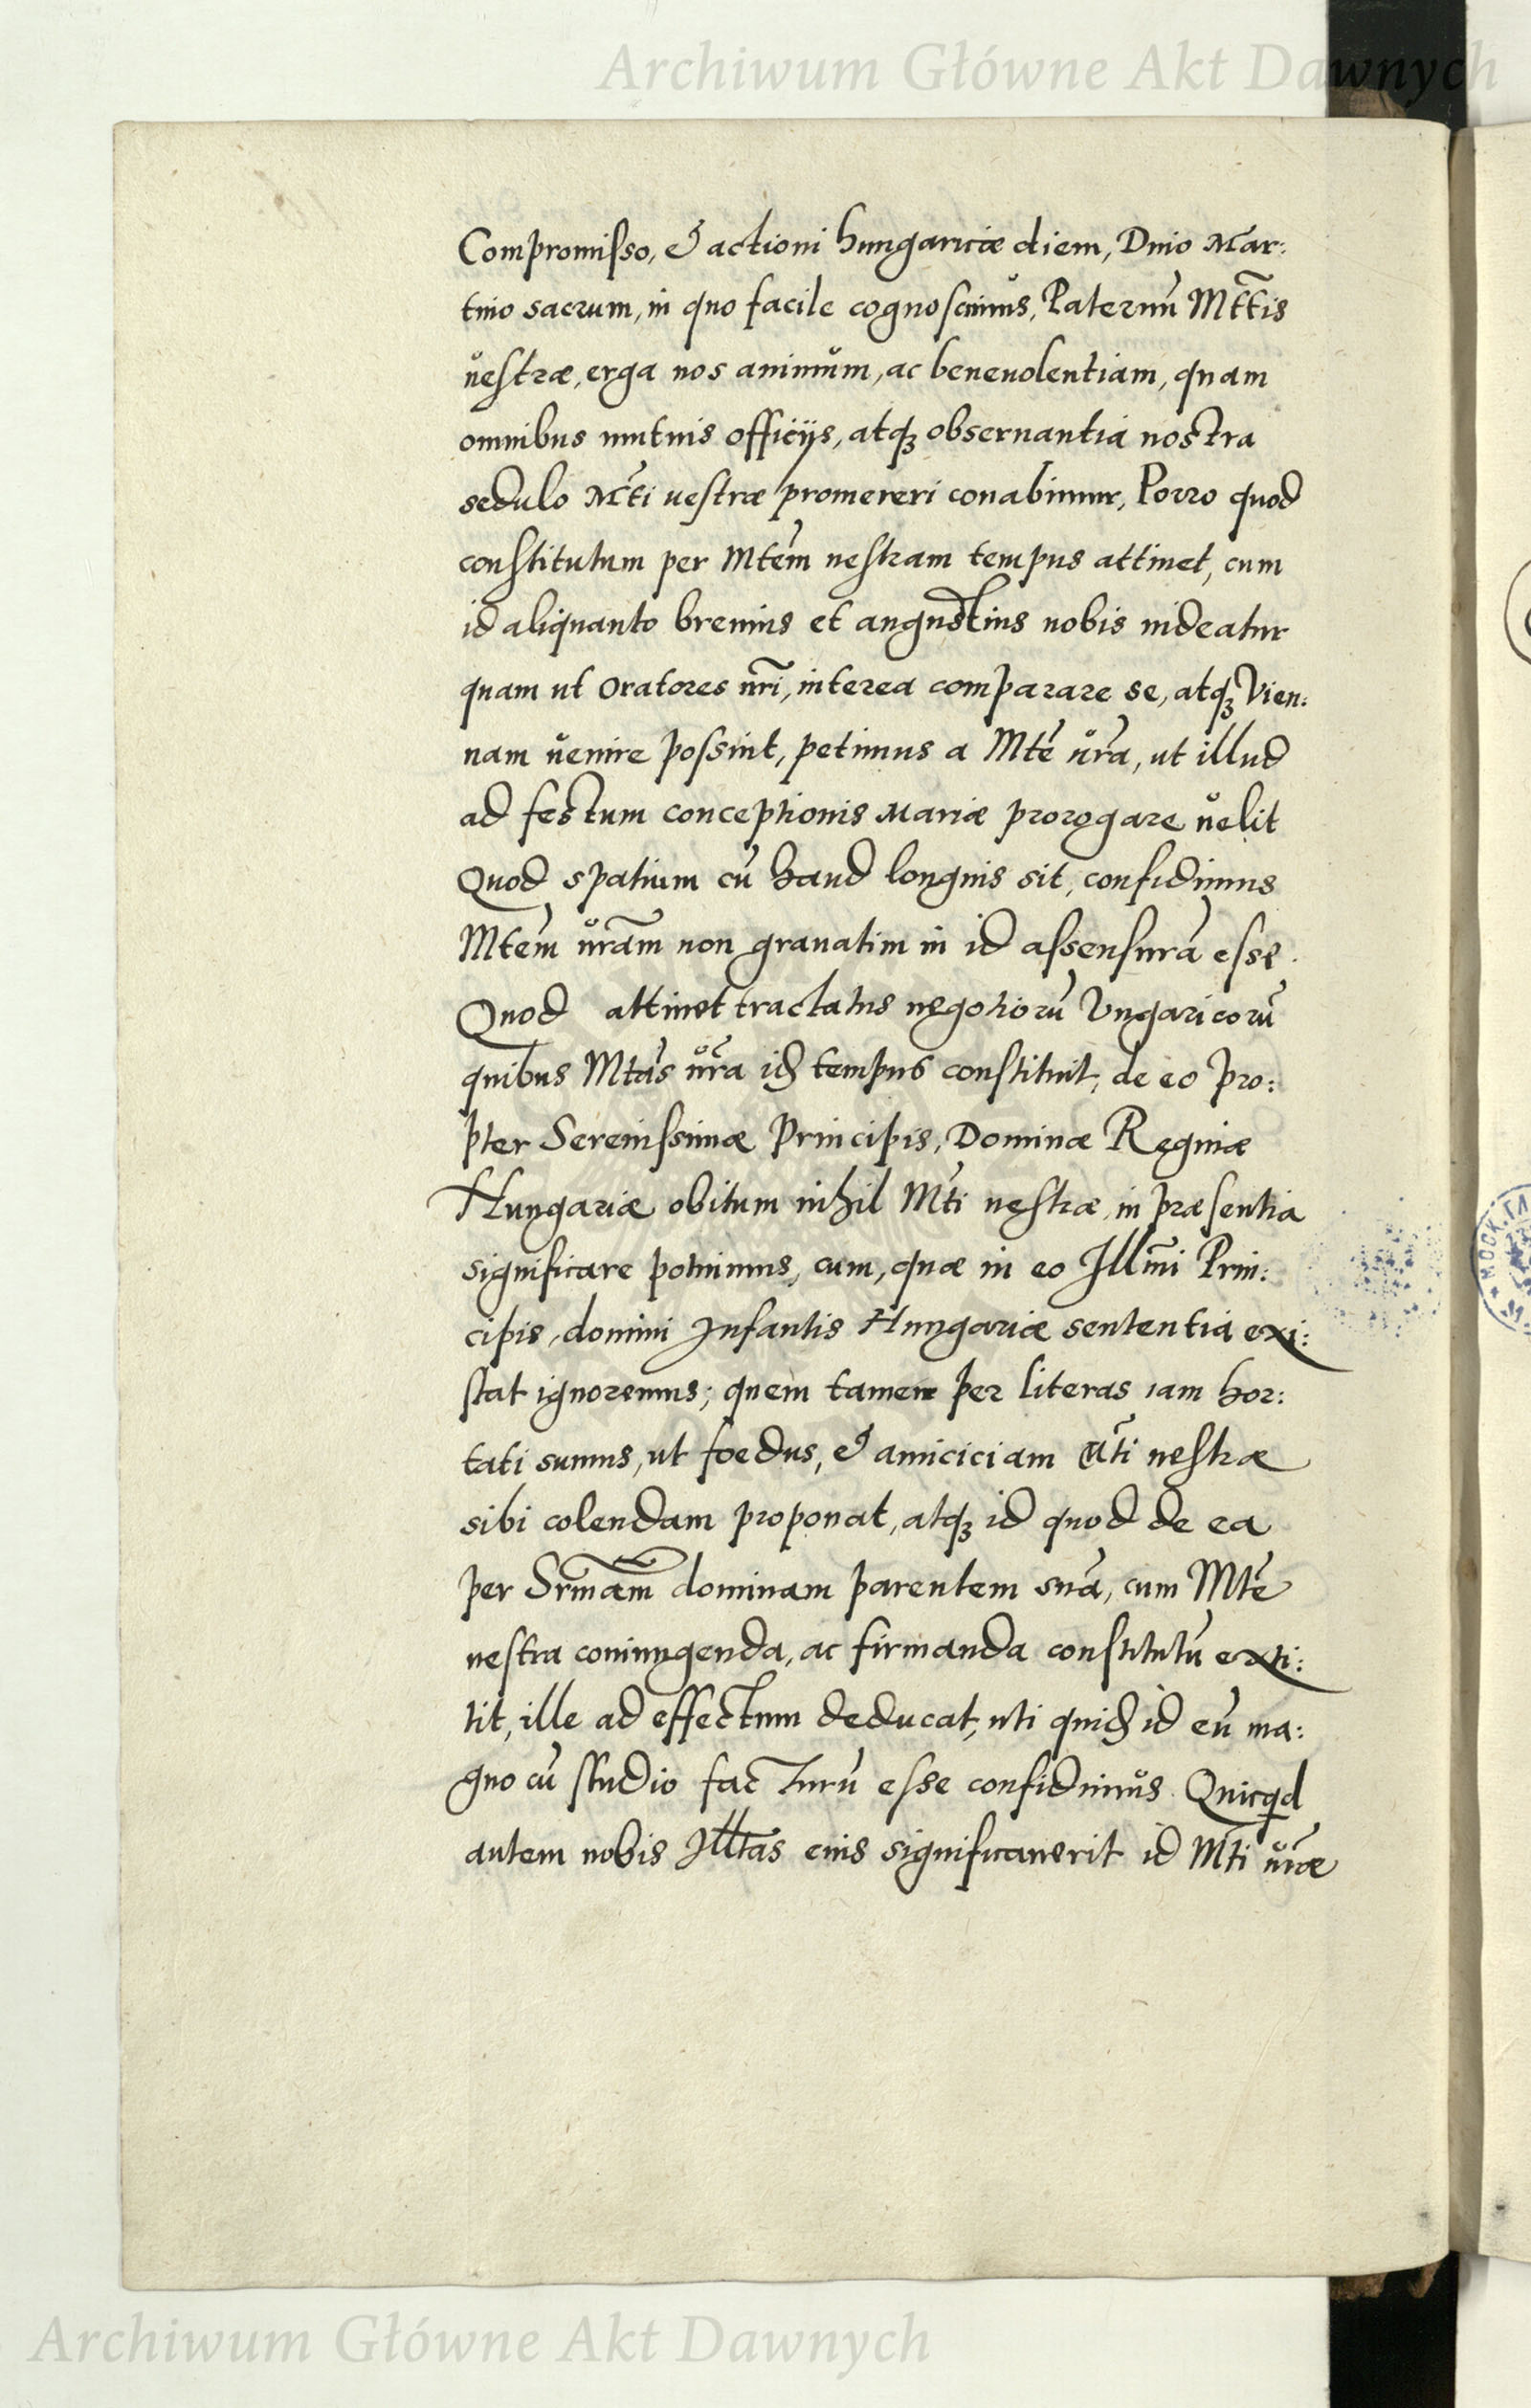 Archiwum Główne Akt Dawnych
Compromisso, & actioni hungaricæ diem, Diuo Mar:
tino sacrum, in quo facile cognoscimus, Paternũ Mttis
uestræ, erga nos animum, ac beneuolentiam, quam
omnibus mutuis officijs, atqꝫ obseruantia nostra
sedulo Mti uestræ promereri conabimur, Porro quod
constitutum per Mtem uestram tempus attinet, cum
id aliquanto breuius et angustius nobis uideatur
quam ut Oratores nri, interea comparare se, atqꝫ Vien:
nam uenire possint, petimus a Mte ura, ut illud
ad festum conceptionis Mariæ prorogare uelit
Quod spatium cũ haud longius sit, confidimus
Mtem uram non grauatim in id assensurã esse.
Quod attinet tractatus negotiorũ Vngaricorũ
quibus Mtas ura id tempus constituit, de eo pro:
pter Serenissimæ Principis, Dominæ Reginæ
Hungariæ obitum nihil Mti uestræ, in præsentia
significare potuimus, cum, quæ in eo Illmi Prin:
cipis, domini Infantis Hungariæ sententia exi:
stat ignoremus; quem tamen per literas iam hor:
tati sumus, ut foedus, & amiciciam Mti uestræ
sibi colendam proponat, atqꝫ id quod de ea
per Srmam dominam parentem suã, cum Mte
uestra coniungenda, ac firmanda constitutũ exti:
tit, ille ad effectum deducat, uti quid id eũ ma:
gno cũ studio facturũ esse confidimus. Quicqd
autem nobis Illtas eius significauerit id Mti uræ
МОСК. ГЛ
Archiwum Główne Akt Dawnych